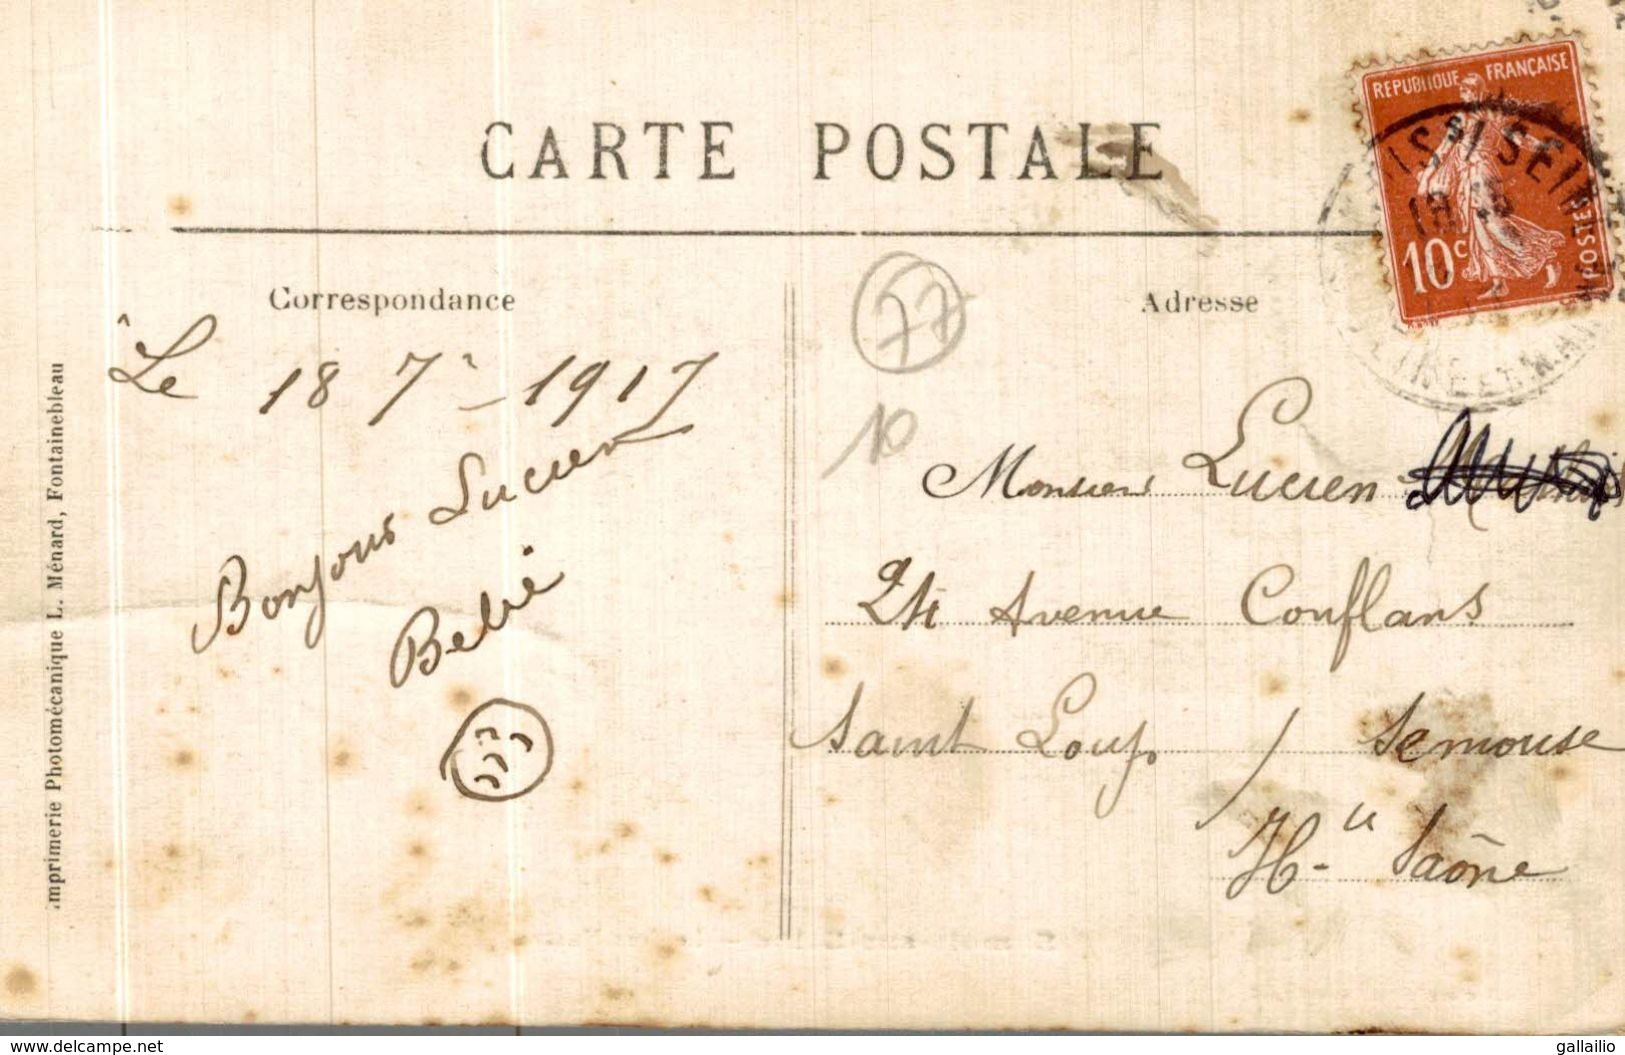 CARTE POSTALE
Correspondance
Adresse
REPUBLIQUE FRANÇAISE
10c
POSTES
S/ SEINE
SEINE ET MA
77
10
Le 18 7 - 1917
Bonjour Lucien
Bébé
Monsieur Lucien
24 Avenue Conflans
Saint Loup / Semouse
Hte Saône
Imprimerie Photomécanique L. Ménard, Fontainebleau
www.delcampe.net
gallailio